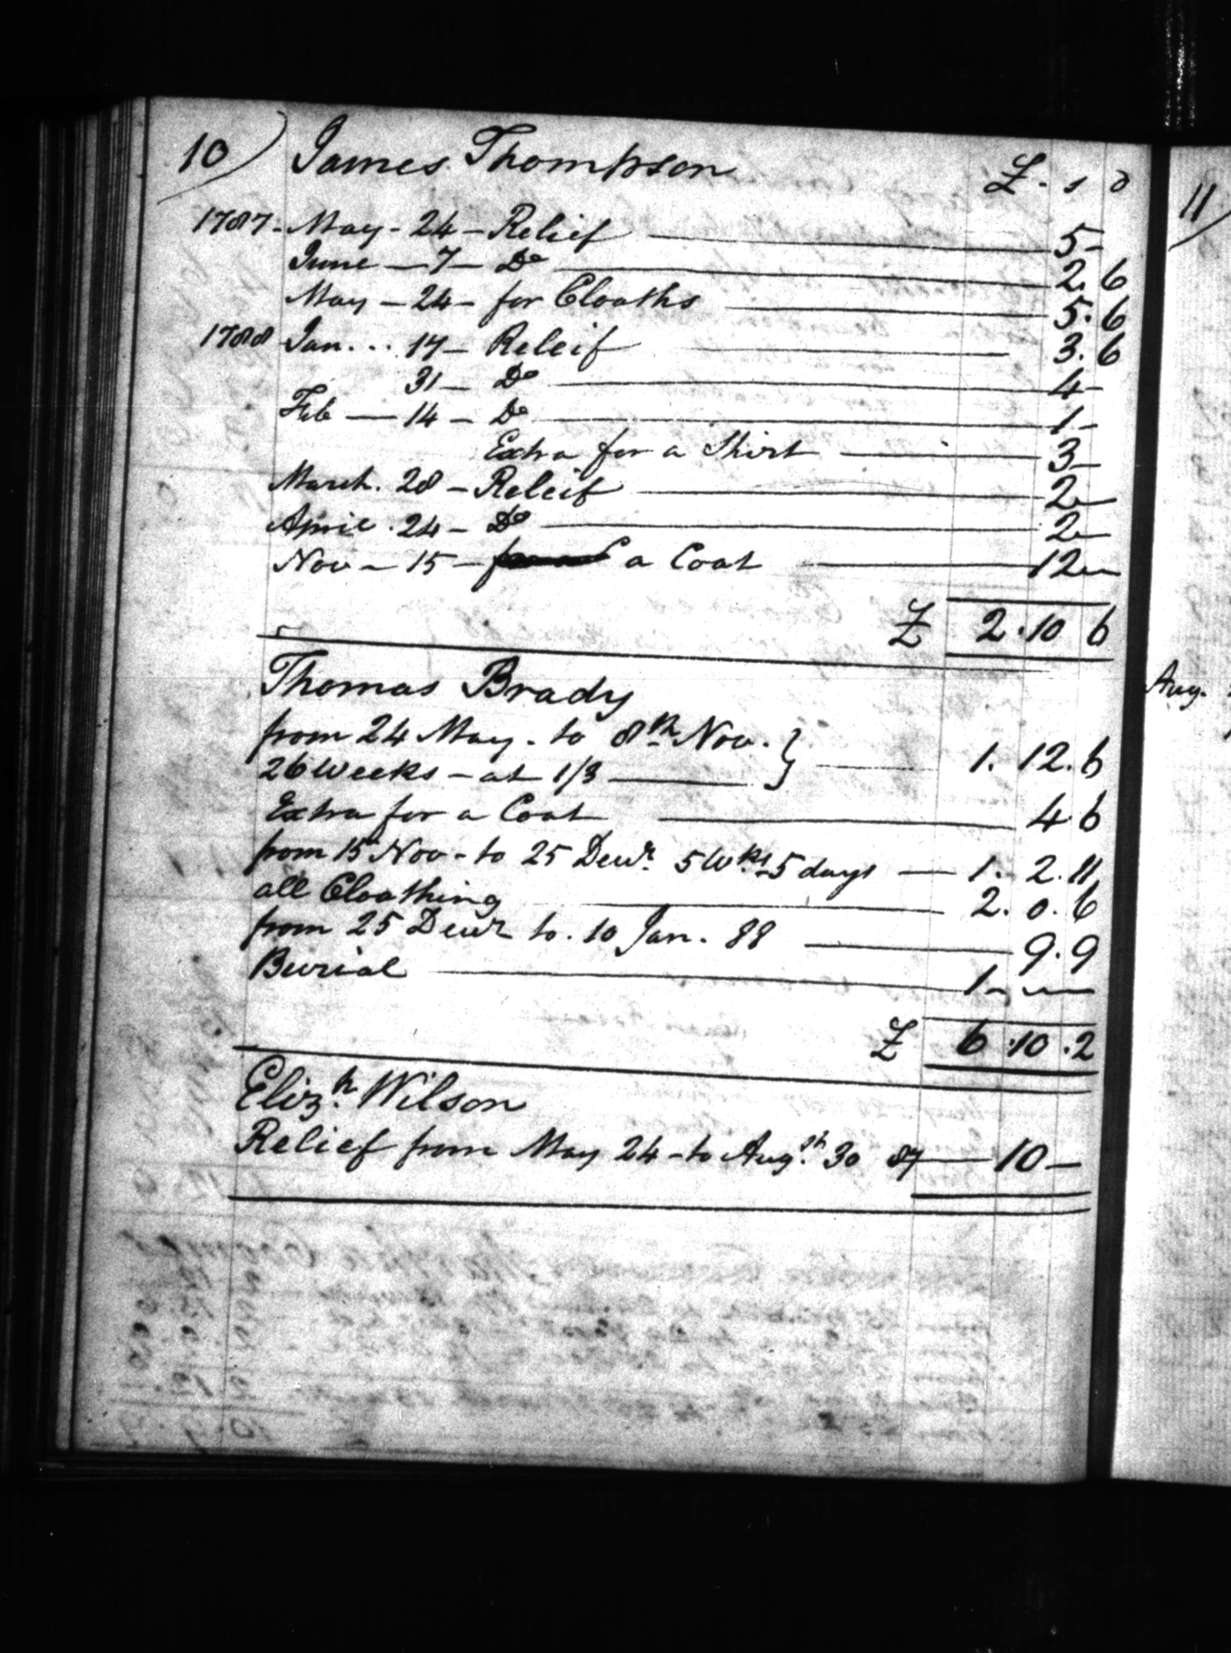 10) James Thompson £ - s d
1787 - May - 24 - Relief 5 -
June - 7 - Do 2. 6
May - 24 - for Cloaths 5. 6
1788 Jan. . . 17 - Releif 3. 6
31 - Do 4 -
Feb - 14 - Do 1 -
Extra for a Shirt 3 -
March. 28 - Releif 2 -
April. 24 - Do 2 -
Nov - 15 - a Coat 12 -
£ 2. 10 6
Thomas Brady
from 24 May. to 8th Nov. }
26 Weeks - at 1/3 } 1. 12. 6
Extra for a Coat 4 6
from 15 Nov - to 25 Decr. 5 Wks. 5 days 1. 2. 11
all Cloathing 2. 0. 6
from 25 Decr to. 10 Jan. 88 9. 9
Burial 1 - -
£ 6. 10. 2
Elizh. Wilson
Relief from May 24 - to Augst. 30 87 10 -
11)
Aug.